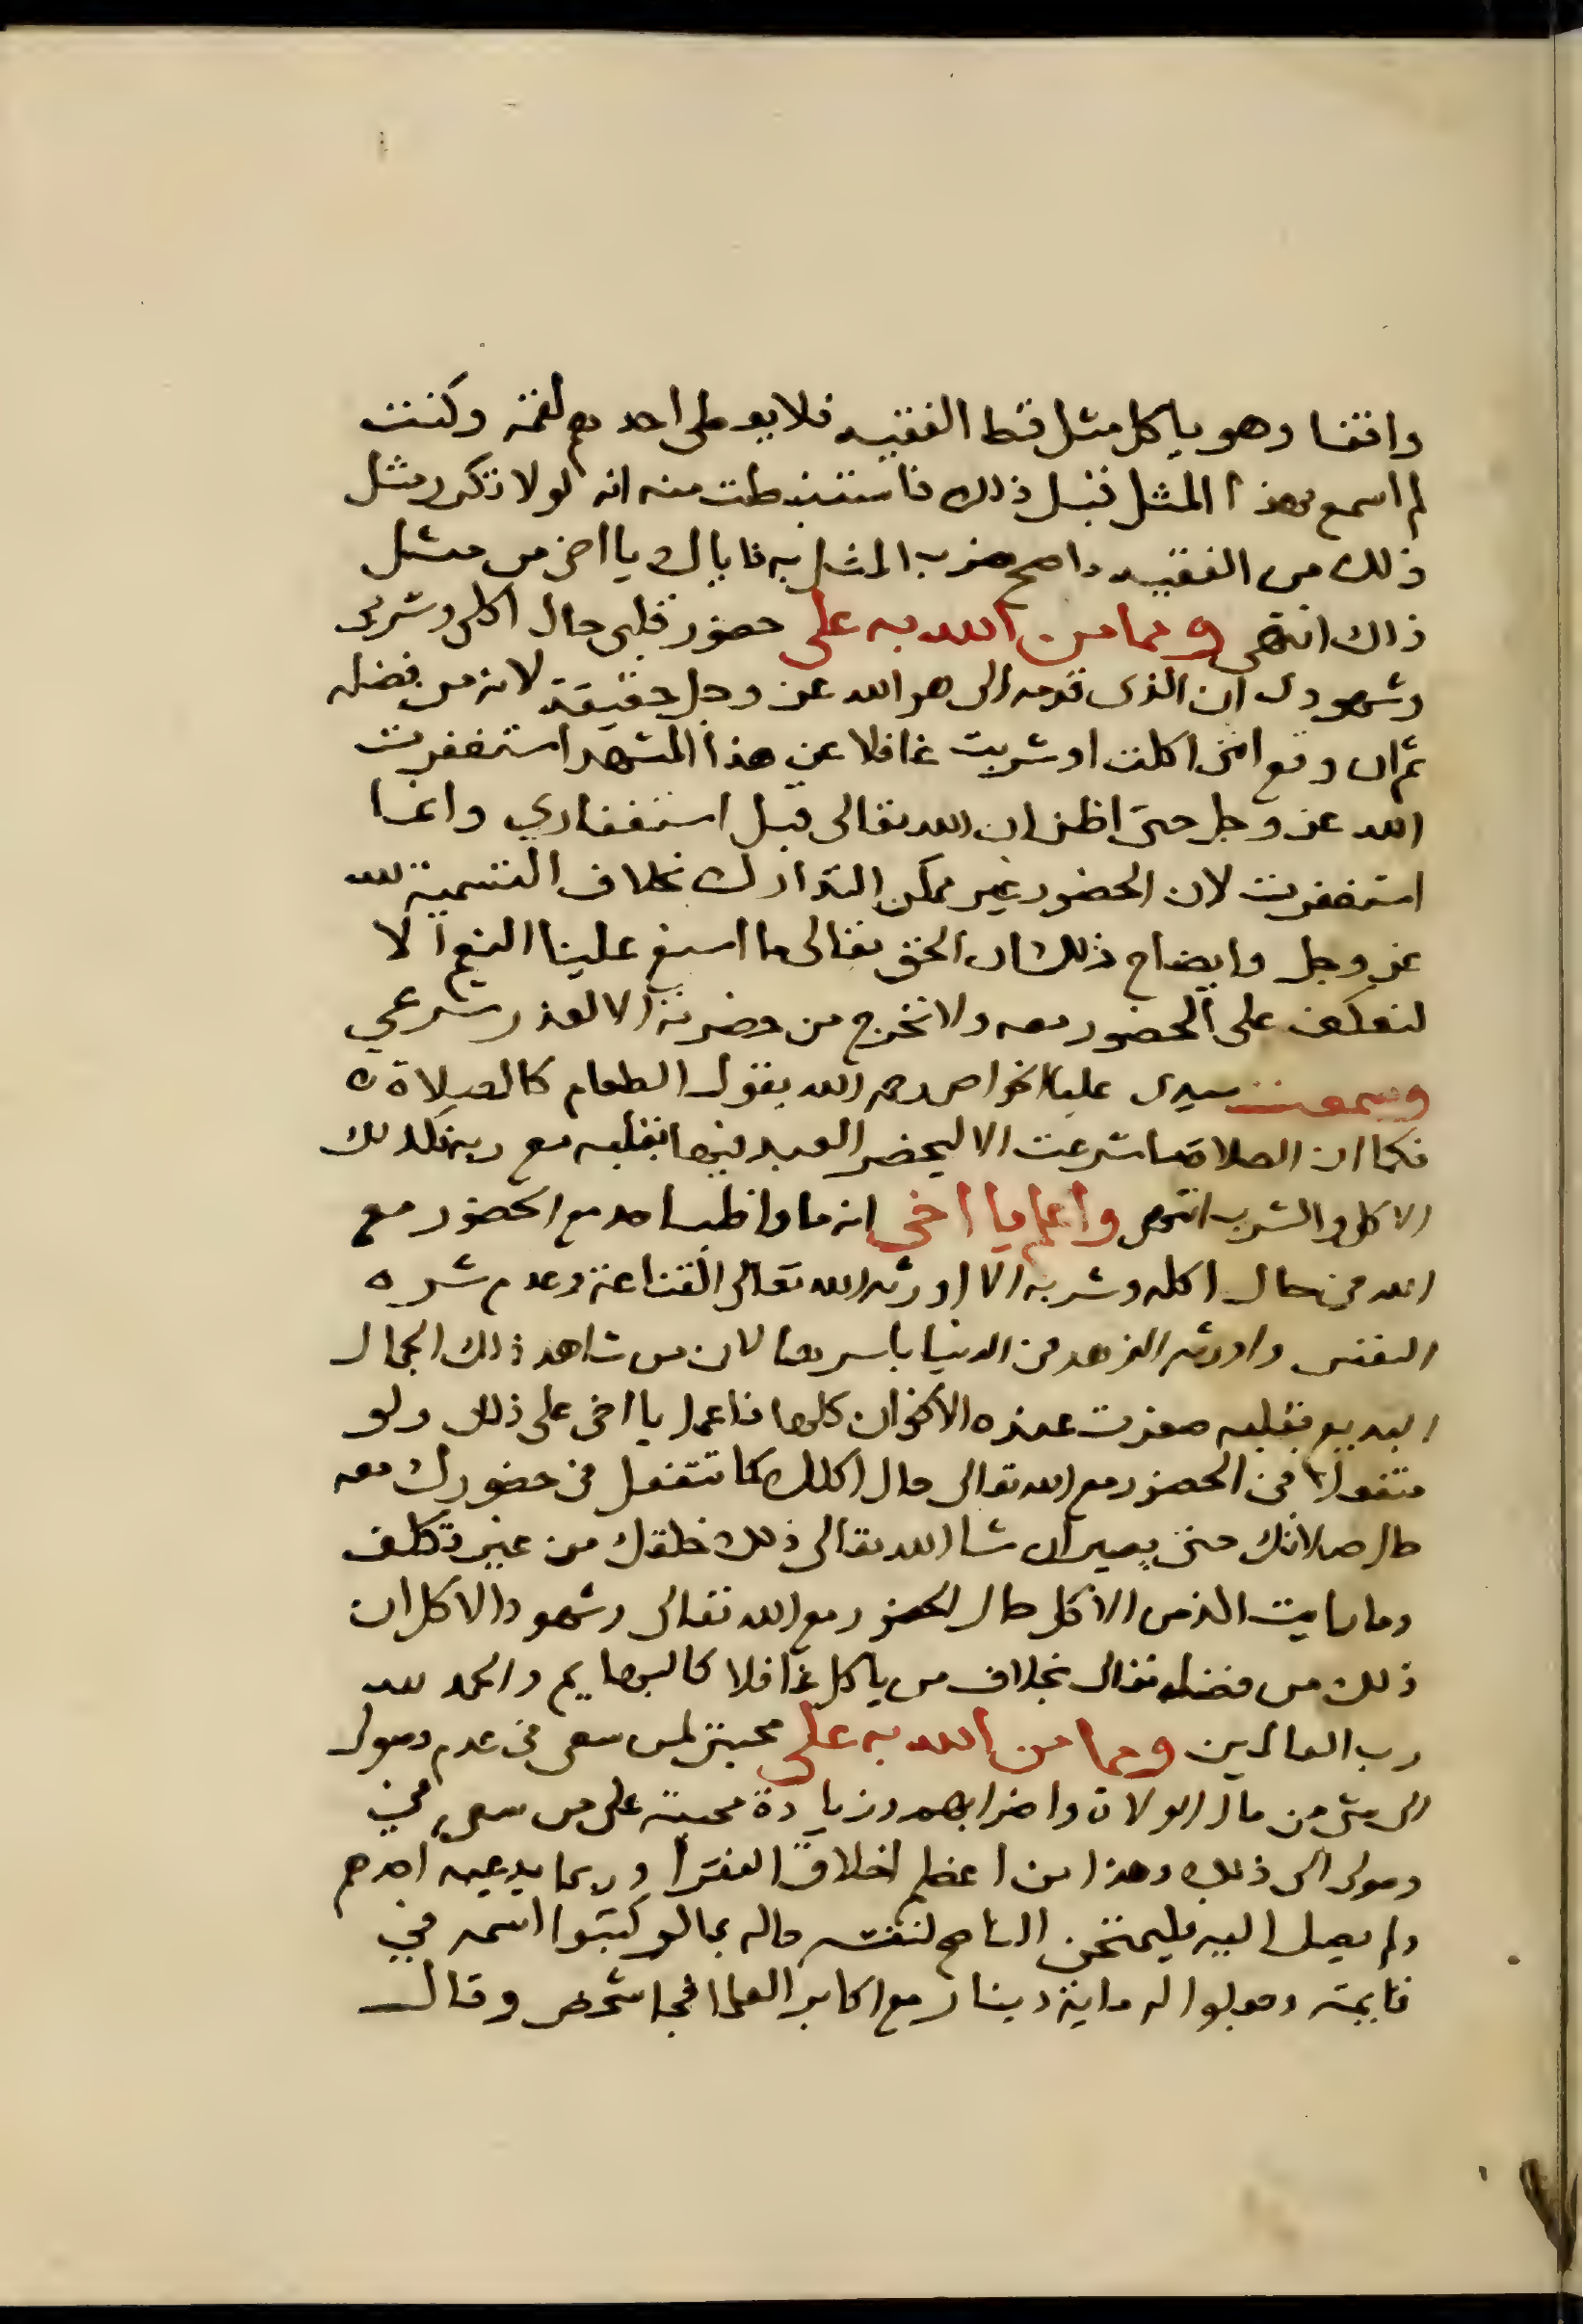 واقفا وهو ياكل مثل قط الفقيه فلا يوطى احد مع لقمة وكنت
لم اسمع بهذا المثل قبل ذلك فاستنبطت منه انه لولا تكرر مثل
ذلك من الفقيه ما صح ضرب المثل به فاياك يا اخى من مثل
ذلك انتهى ومما من الله به على حضور قلبى حال اكلى وشربى
وشهودى ان الذى قدمه الى هو الله عز وجل حقيقة لانه من فضله
ثم ان وقع اننى اكلت او شربت غافلا عن هذا المشهد استغفرت
الله عز وجل حتى اظن ان الله تعالى قبل استغفاري وانما
استغفرت لان الحضور غير ممكن التدارك بخلاف التسمية لله
عز وجل وايضاح ذلك ان الحق تعالى ما اسبغ علينا النعم الا
لنعكف على الحضور معه ولا نخرج من حضرته الا لعذر شرعي
وسمعت سيدى عليا الخواص رحمه الله يقول الطعام كالصلاة ه
فكما ان الصلاة ما شرعت الا ليحضر العبد فيها بقلبه مع ربه فكذلك
الاكل والشرب انتهى واعلم يا اخي انه ما واظب احد مع الحضور مع
الله فى حال اكله وشربه الا اورثه الله تعالى القناعة وعدم شره
النفس واورثه الزهد فى الدنيا باسرها لان من شاهد ذلك الجمال
البديع بقلبه صغرت عنده الاكوان كلها فاعمل يا اخى على ذلك ولو
متفعلا فى الحضور مع الله تعالى حال اكلك كما تتفعل فى حضورك معه
حال صلاتك حتى يصير ان شا الله تعالى ذلك خلقك من غير تكلف
وما رايت الذ من الاكل حال الحضور مع الله تعالى وشهود الاكل ان
ذلك من فضله تعالى بخلاف من ياكل غافلا كالبهايم والحمد لله
رب العالمين ومما من الله به على محبتى لمن سعى فى عدم وصول
الى شى من مال الولاة واضرابهم وزيادة محبته على من سعى في
وصولى الى ذلك وهذا من اعظم اخلاق الفقرا وربما يدعيه احدهم
ولم يصل اليه فليمتحن الناصح لنفسه حاله بما لو كتبوا اسمه في
قايمة وصلوا له ماية دينار مع اكابر العلما فجا شخص وقال